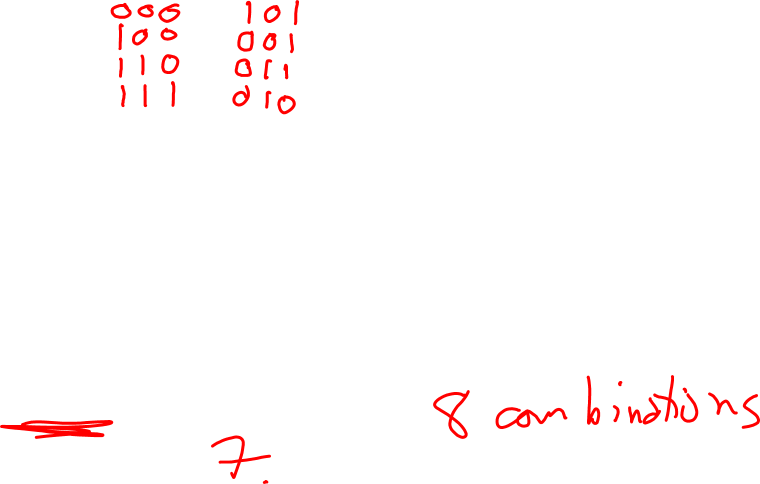 000 101
100 001
110 011
111 010
8 combinations
7.